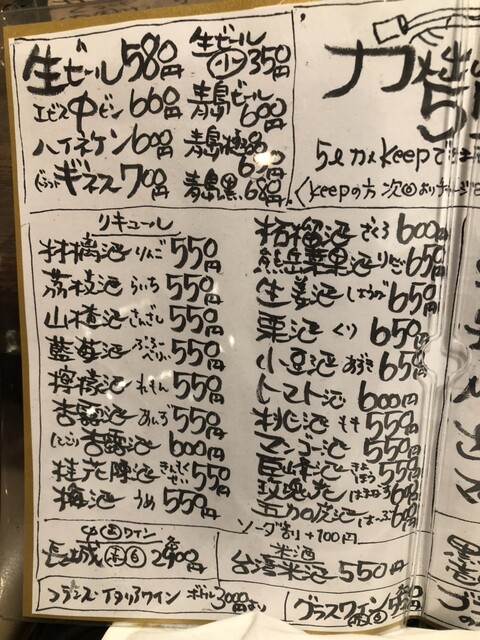 生ビール 580円
エビス中ビン 600円
ハイネケン 600円
ギネス 700円
生ビール 小 350円
青島ビール 600円
青島極品 650円
青島黒 680円
カメ
5ℓカメKeepでき
くKeepの方 次回おりチャージ
リキュール
林檎酒 りんご 550円
茘枝酒 らいち 550円
山楂酒 さんざし 550円
藍苺酒 ぶるーべりー 550円
檸檬酒 れもん 550円
杏露酒 あんず 550円
にごり杏露酒 600円
桂花陳酒 きんもくせい 550円
梅酒 うめ 550円
柘榴酒 ざくろ 600円
熊岳苹果酒 りんご 650円
生姜酒 しょうが 650円
栗酒 くり 650円
小豆酒 あずき 650円
トマト酒 600円
桃酒 もも 550円
マンゴー酒 550円
巨峰酒 きょほう 550円
玫瑰酒 はまなす 600円
五加皮酒 はーぶ 600円
ソーダ割り+100円
ワイン
長城 赤白 2900円
米酒
台湾米酒 550円
フランス・イタリアワイン ボトル3000円より
グラスワイン 赤白